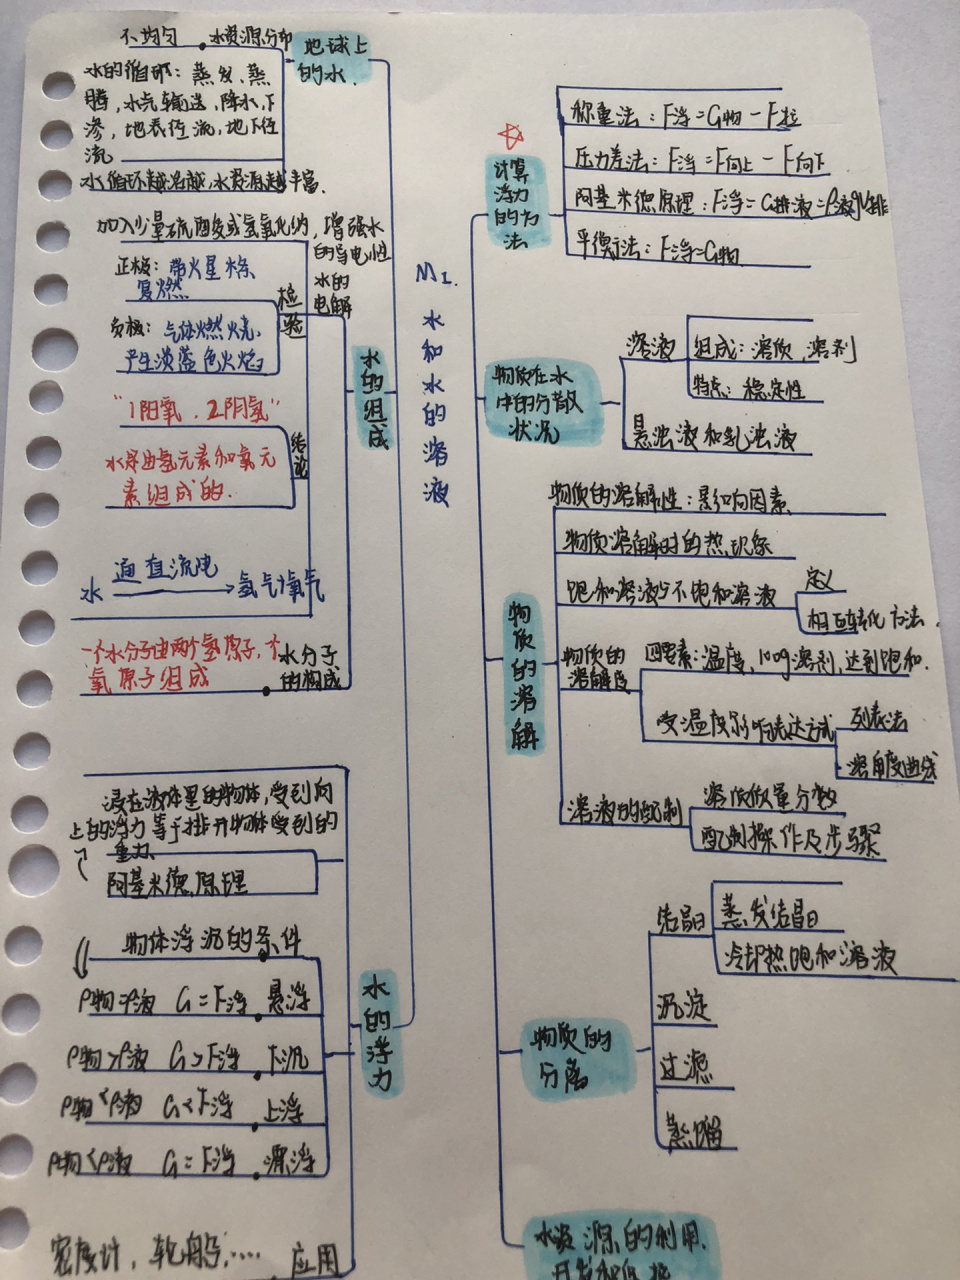 不均匀 水资源分布 地球上
的水.
水的循环：蒸发、蒸
腾，水汽输送，降水，下
渗，地表径流，地下径
流
水循环越活越，水资源越丰富.
加入少量硫酸或氢氧化钠，增强水
的导电性
水的
电解
检
验
正极：带火星木条
复燃
负极：气体燃烧，
产生淡蓝色火焰
水的组成
"1阳氧．2阴氢"
结论
水是由氢元素和氧元
素组成的.
水 通直流电 氢气+氧气
一个水分子由两个氢原子，个
氧原子组成
水分子
的构成
浸在液体里的物体，受到向
上的浮力等于排开物体受到的
重力
阿基米德原理
物体浮沉的条件
ρ物=ρ液 G=F浮 悬浮
ρ物>ρ液 G>F浮 下沉
ρ物<ρ液 G<F浮 上浮
ρ物<ρ液 G=F浮 漂浮
水的浮力
密度计，轮船，…… 应用
M1.
水和水的溶液
计算
浮力
的方
法
称重法：F浮=G物-F拉
压力差法：F浮=F向上-F向下
阿基米德原理：F浮=G排液=ρ液gV排
平衡法：F浮=G物
物质在水
中的分散
状况
溶液
组成：溶质，溶剂
特点：稳定性
悬浊液和乳浊液
物质的溶解
物质的溶解性：影响因素
物质溶解时的热现象
饱和溶液与不饱和溶液
定义
相互转化方法.
物质的
溶解度
四要素：温度，100g溶剂，达到饱和.
受温度影响表达方式
列表法
溶解度曲线
溶液的配制
溶质质量分数
配制操作及步骤
物质的
分离
结晶
蒸发结晶
冷却热饱和溶液
沉淀
过滤
蒸馏
水资源的利用.
开发和保护